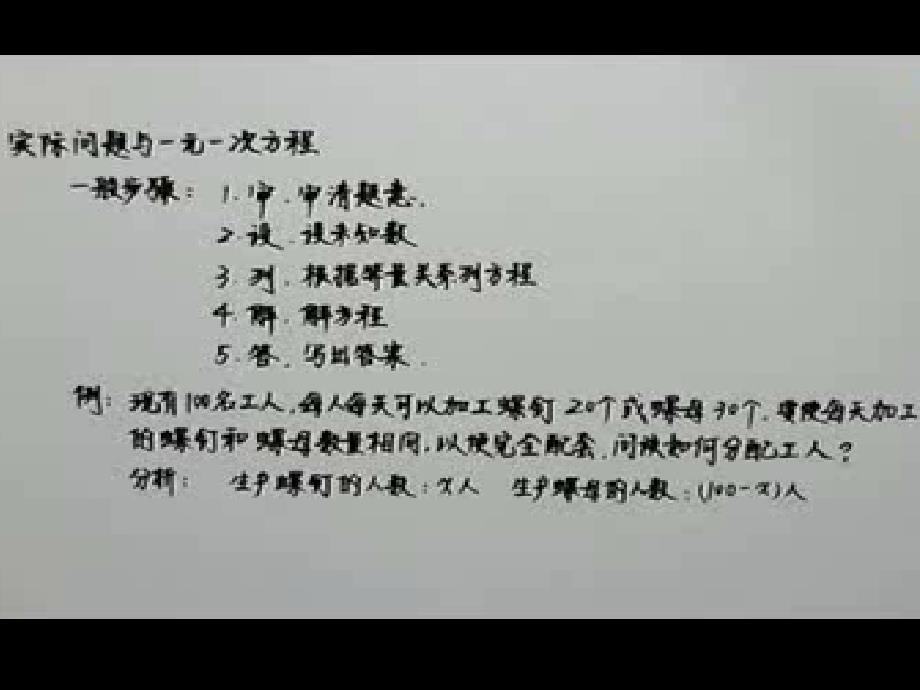 实际问题与一元一次方程
一般步骤：1.审.审清题意.
2.设.设未知数
3.列.根据等量关系列方程
4.解.解方程
5.答.写出答案.
例：现有100名工人,每人每天可以加工螺钉20个或螺母30个,要使每天加工
的螺钉和螺母数量相同,以便完全配套,问该如何分配工人？
分析：生产螺钉的人数：x人 生产螺母的人数：(100-x)人